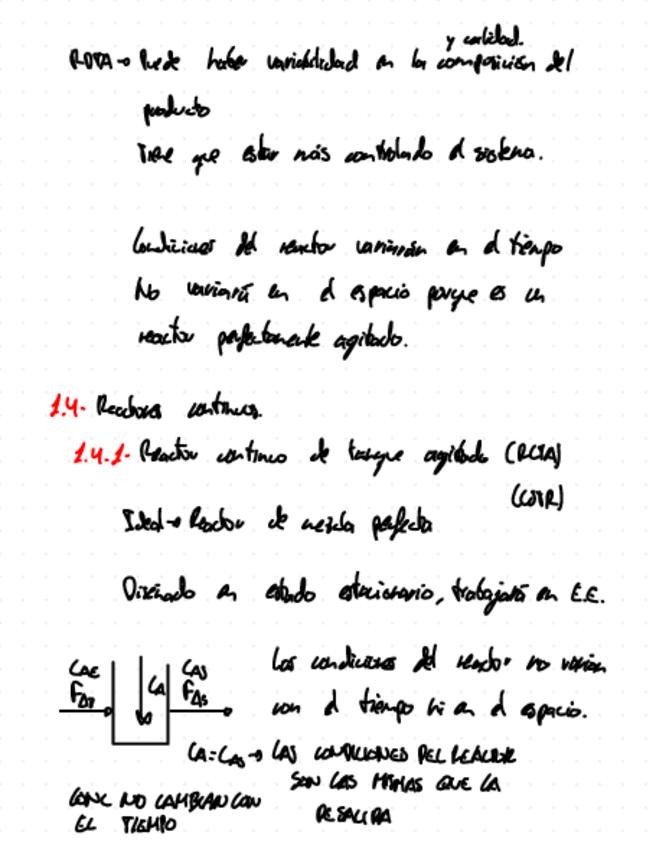 y calidad.
RDTA → Puede haber variabilidad en la composición del
producto
Tiene que estar más controlado el sistema.
Condiciones del reactor variarán en el tiempo
No variará en el espacio porque es un
reactor perfectamente agitado.
1.4- Reactores continuos.
1.4.1- Reactor continuo de tanque agitado (RCTA)
(CSTR)
Ideal → Reactor de mezcla perfecta
Diseñado en estado estacionario, trabajará en E.E.
Las condiciones del reactor no varían
con el tiempo ni en el espacio.
CAE
CA
CAS
FAS
CA = CAS → LAS CONDICIONES DEL REACTOR
SON LAS MISMAS QUE LA
DE SALIDA
CONC NO CAMBIAN CON
EL TIEMPO